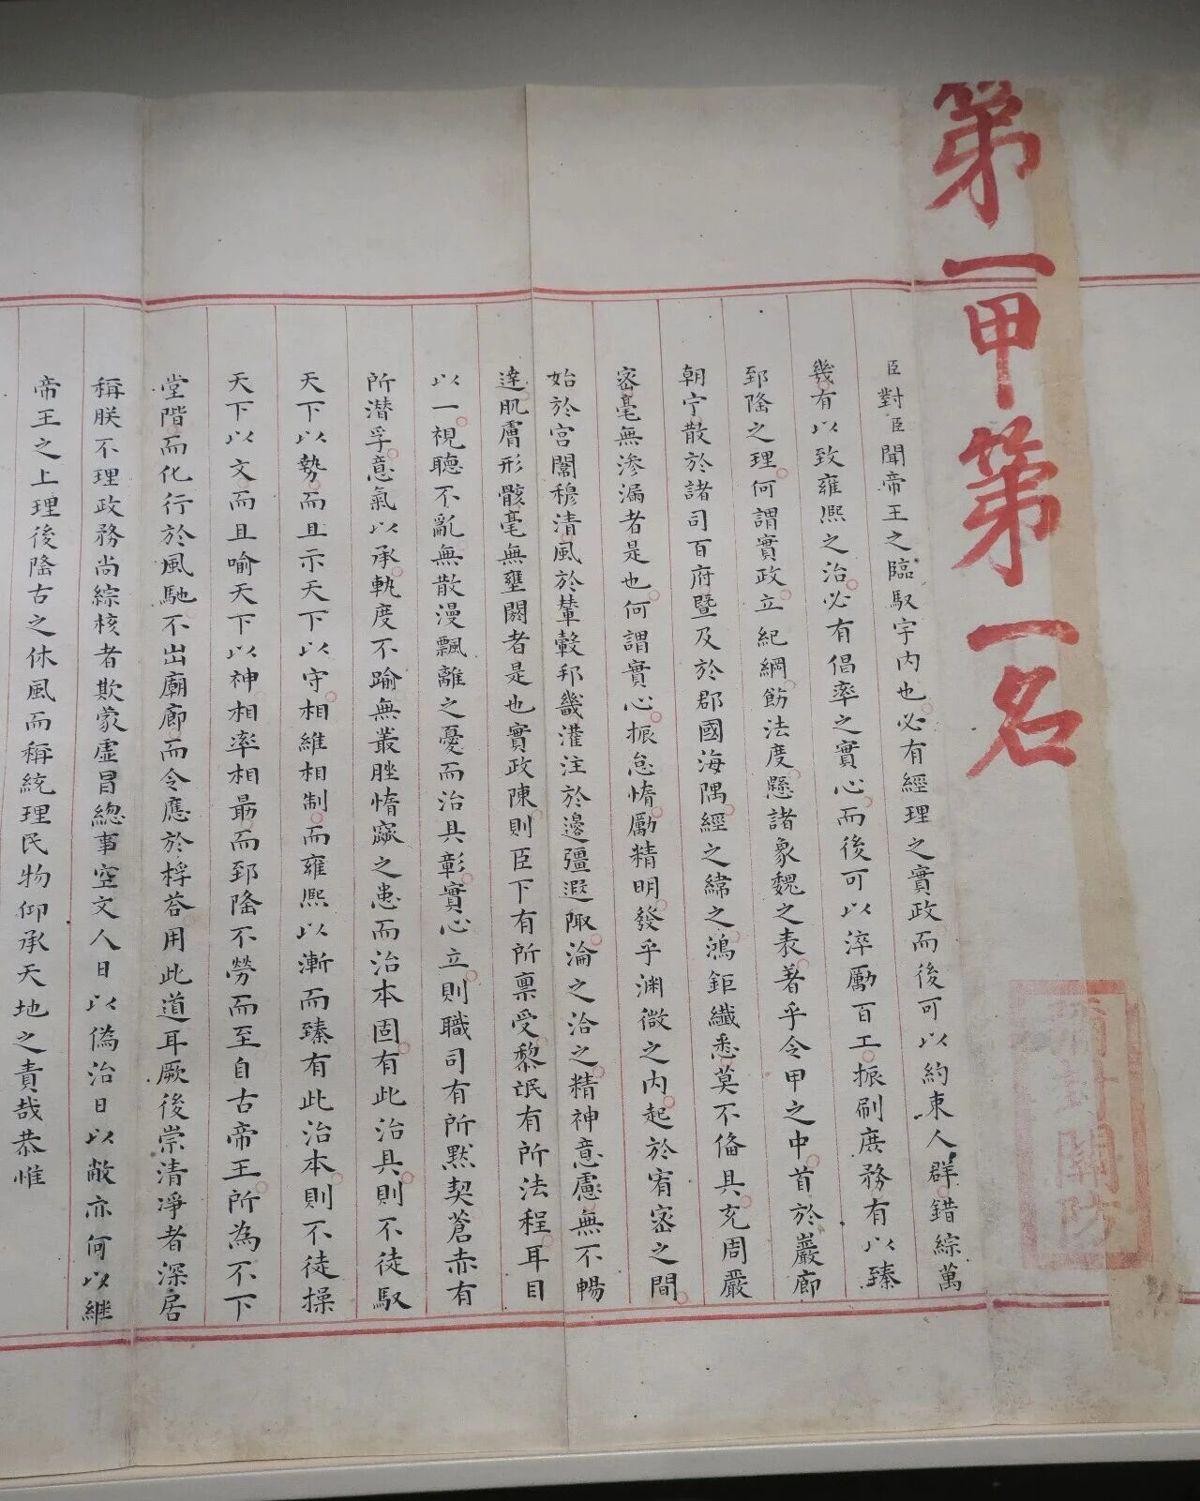 第一甲第一名
彌封關防
臣對臣聞帝王之臨馭宇内也必有經理之實政而後可以約束人群錯綜萬
幾有以致雍熈之治必有倡率之實心而後可以淬勵百工振刷庶務有以臻
郅隆之理何謂實政立紀綱飭法度懸諸象魏之表著乎令甲之中首於巖廊
朝宁散於諸司百府暨及於郡國海隅經之緯之鴻鉅纖悉莫不俻具充周嚴
宻毫無渗漏者是也何謂實心振怠惰勵精明發乎渊微之内起於宥宻之間
始於宫闈穆清風於輦轂邦畿灌注於邊疆遐陬淪之洽之精神意慮無不暢
達肌膚形骸毫無壅閼者是也實政陳則臣下有所禀受黎氓有所法程耳目
以一視聴不亂無散漫飄離之憂而治具彰實心立則職司有所黙契蒼赤有
所潜孚意氣以承軌度不踰無叢脞惰窳之患而治本固有此治具則不徒馭
天下以勢而且示天下以守相維相制而雍熈以漸而臻有此治本則不徒操
天下以文而且喻天下以神相率相朂而郅隆不勞而至自古帝王所為不下
堂階而化行於風馳不出廟廊而令應於桴荅用此道耳厥後崇清淨者深居
稱朕不理政務尚綜核者欺蒙虚冒總事空文人日以偽治日以敝亦何以継
帝王之上理後隆古之休風而稱統理民物仰承天地之責哉恭惟